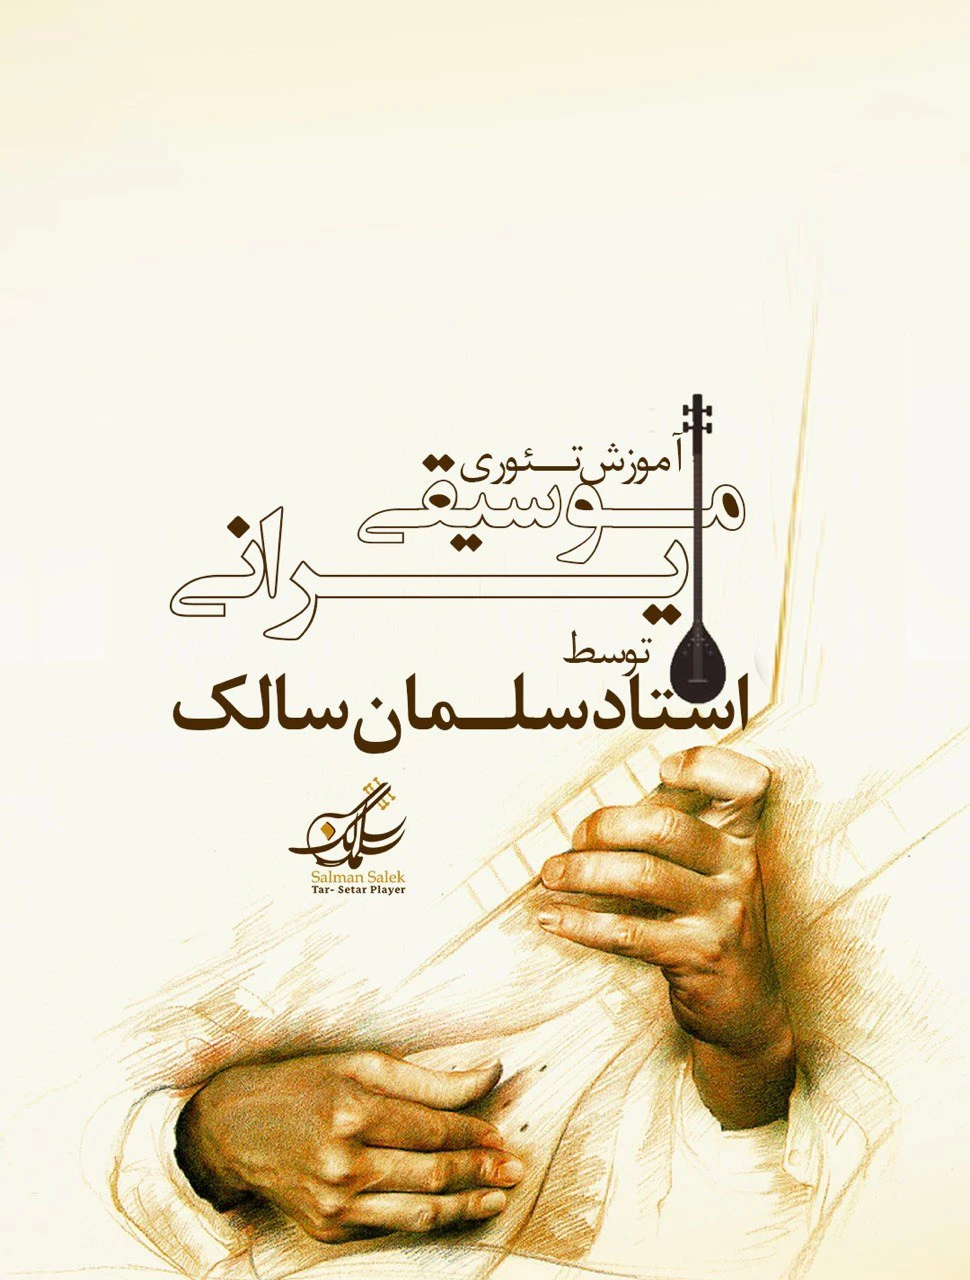 آموزش تئوری
موسیقی
ایرانی
توسط
استاد سلمان سالک
سلمان سالک
Salman Salek
Tar- Setar Player